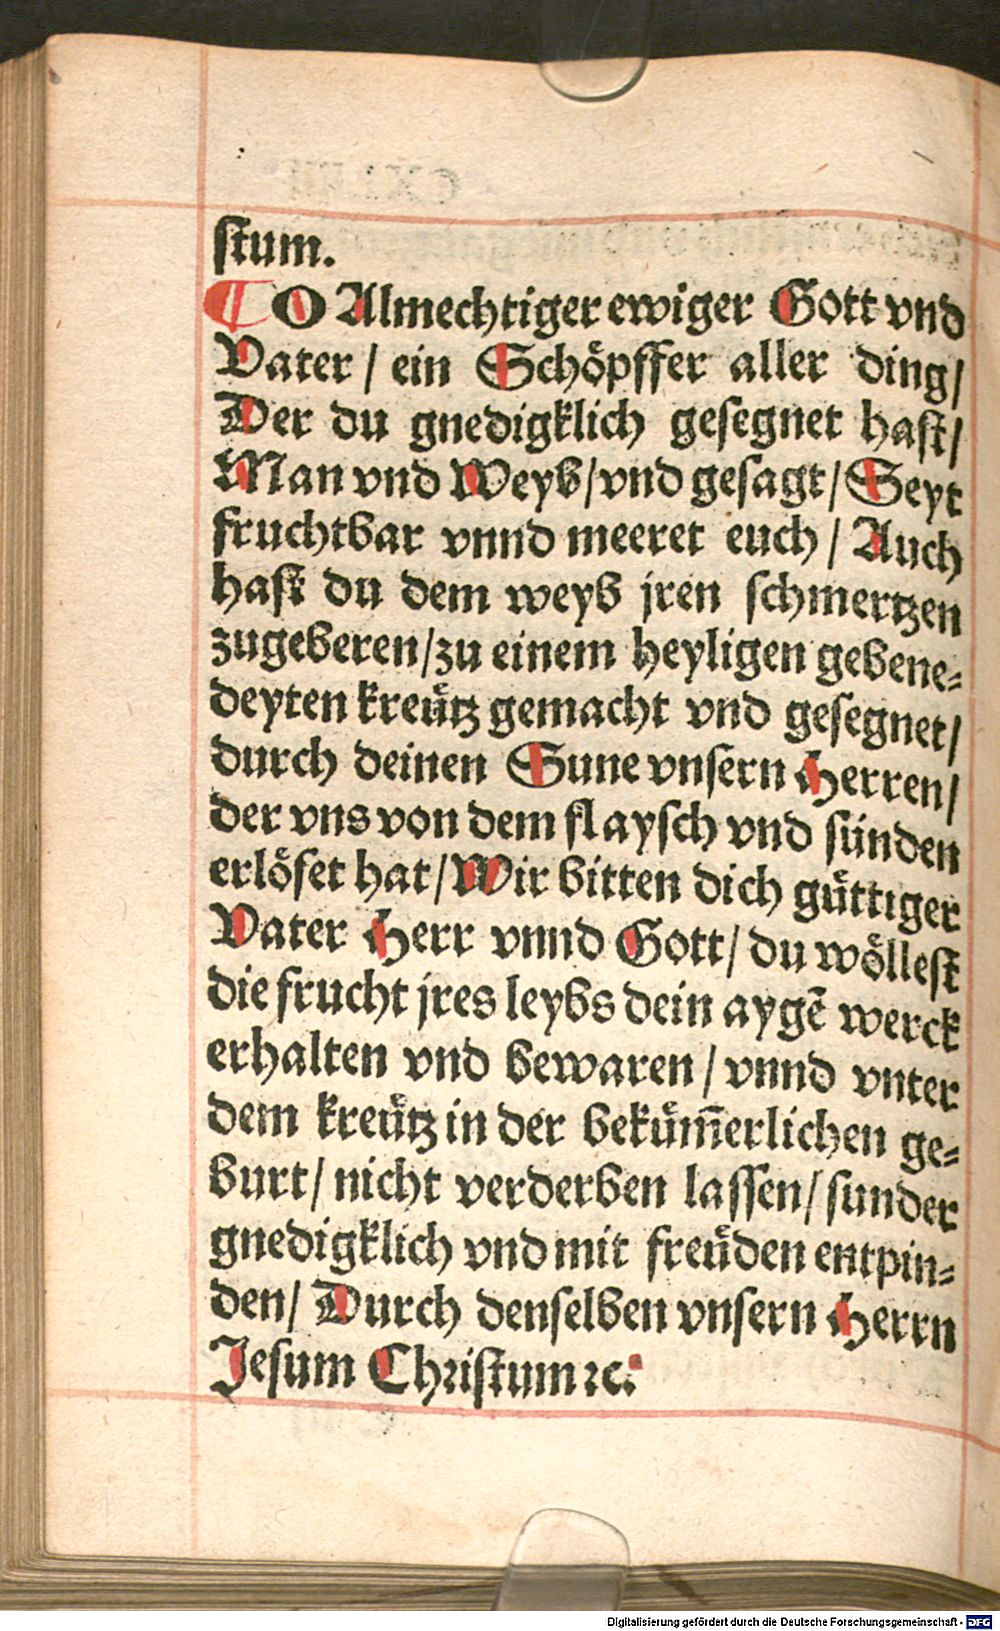 stum.
¶ O Almechtiger ewiger Gott vnd
Vater / ein Schöpffer aller ding /
Der du gnedigklich gesegnet hast /
Man vnd Weyb / vnd gesagt / Seyt
fruchtbar vnnd meeret euch / Auch
hast du dem weyb jren schmertzen
zugeberen / zu einem heyligen gebene⸗
deyten kreütz gemacht vnd gesegnet /
durch deinen Sune vnsern Herren /
der vns von dem flaysch vnd sünden
erlöset hat / Wir bitten dich güttiger
Vater Herr vnnd Gott / du wöllest
die frucht jres leybs dein aygē werck
erhalten vnd bewaren / vnnd vnter
dem kreütz in der bekümm̄erlichen ge⸗
burt / nicht verderben lassen / sunder
gnedigklich vnd mit freüden entpin⸗
den / Durch denselben vnsern Herrn
Jesum Christum ꝛc.
Digitalisierung gefördert durch die Deutsche Forschungsgemeinschaft - DFG